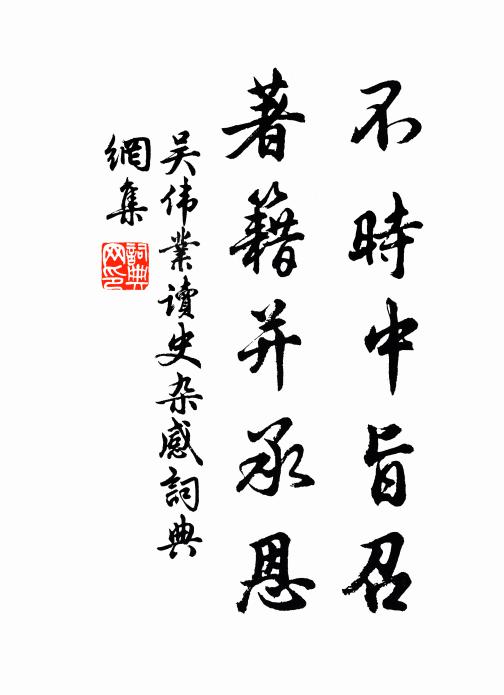 不時中旨召
著籍并承恩
吴伟業讀史杂感詞典
網集
詞典网印